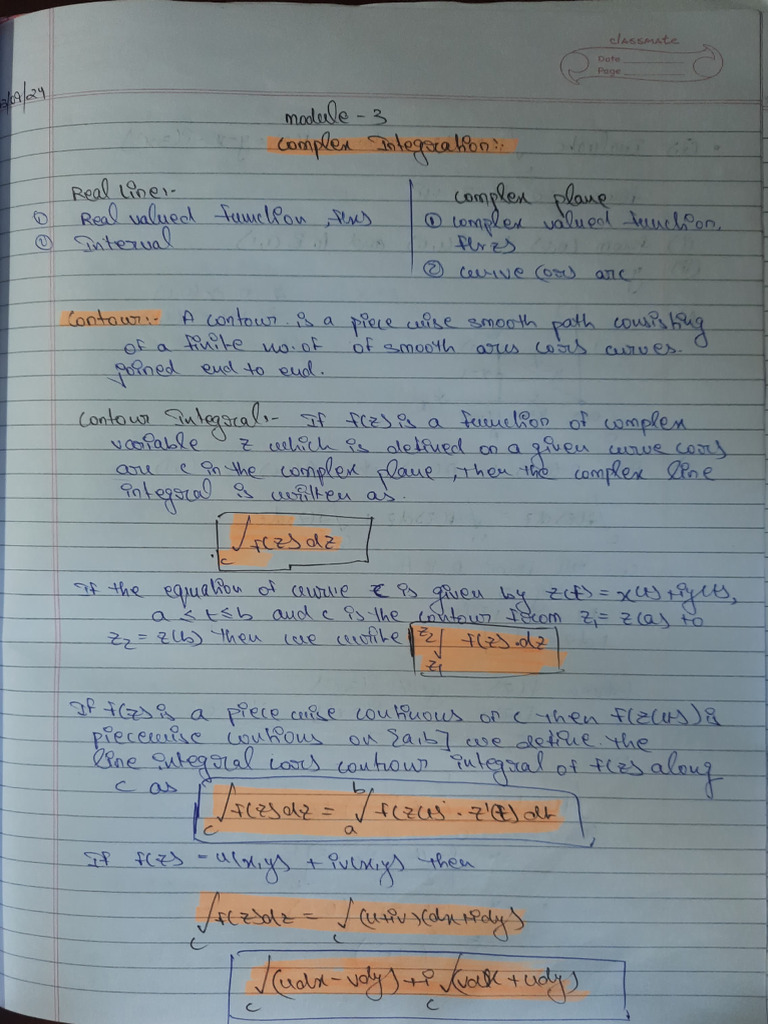 classmate
Date
Page
/09/24
module - 3
Complex Integration:-
Real line:-
① Real valued function, f(x)
② Interval
complex plane
① complex valued function,
f(z)
② curve (or) arc
Contour:- A contour is a piece wise smooth path consisting
of a finite no. of of smooth arcs (or) curves.
joined end to end.
Contour Integral:- If f(z) is a function of complex
variable z which is defined on a given curve (or)
arc c in the complex plane, then the complex line
integral is written as.
∫c f(z) dz
If the equation of curve c is given by z(t) = x(t) + iy(t),
a ≤ t ≤ b and c is the contour from z₁ = z(a) to
z₂ = z(b) then we write ∫z₁^z₂ f(z)·dz
If f(z) is a piece wise continous on c then f(z(t)) is
piecewise contious on [a,b] we define the
line integral (or) contour integral of f(z) along
c as ∫c f(z) dz = ∫a^b f(z(t)) · z'(t) dt
If f(z) = u(x,y) + iv(x,y) then
∫c f(z) dz = ∫c (u+iv)(dx+idy)
∫c (udx - vdy) + i ∫c (vdx + udy)